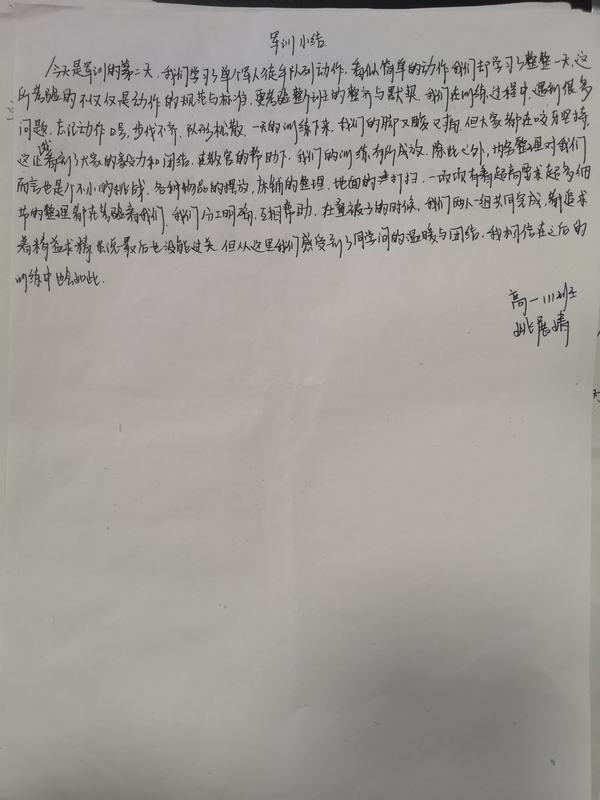 军训小结
今天是军训的第二天,我们学习了单个军人徒手队列动作,看似简单的动作我们却学习了整整一天,这
所考验的不仅仅是动作的规范与标准,更考验整个班的整齐与默契。我们在训练过程中,遇到很多
问题,忘记动作口号,步伐不齐,队形松散。一天的训练下来,我们的脚又酸又痛,但大家都在咬牙坚持,
这让我看到了大家的毅力和团结。在教官的帮助下,我们的训练有所成效。除此之外,内务整理对我们
而言也是个不小的挑战。各种物品的摆放,床铺的整理,地面的打扫,一项项有着超高要求超多细
节的整理都在考验着我们。我们分工明确,互相帮助,在叠被子的时候,我们两人一组共同完成,都追求
着精益求精,虽说最后也没能过关,但从这里我们感受到了同学间的温暖与团结,我相信在之后的
训练中也会如此。
高一(11)班
姚展婧